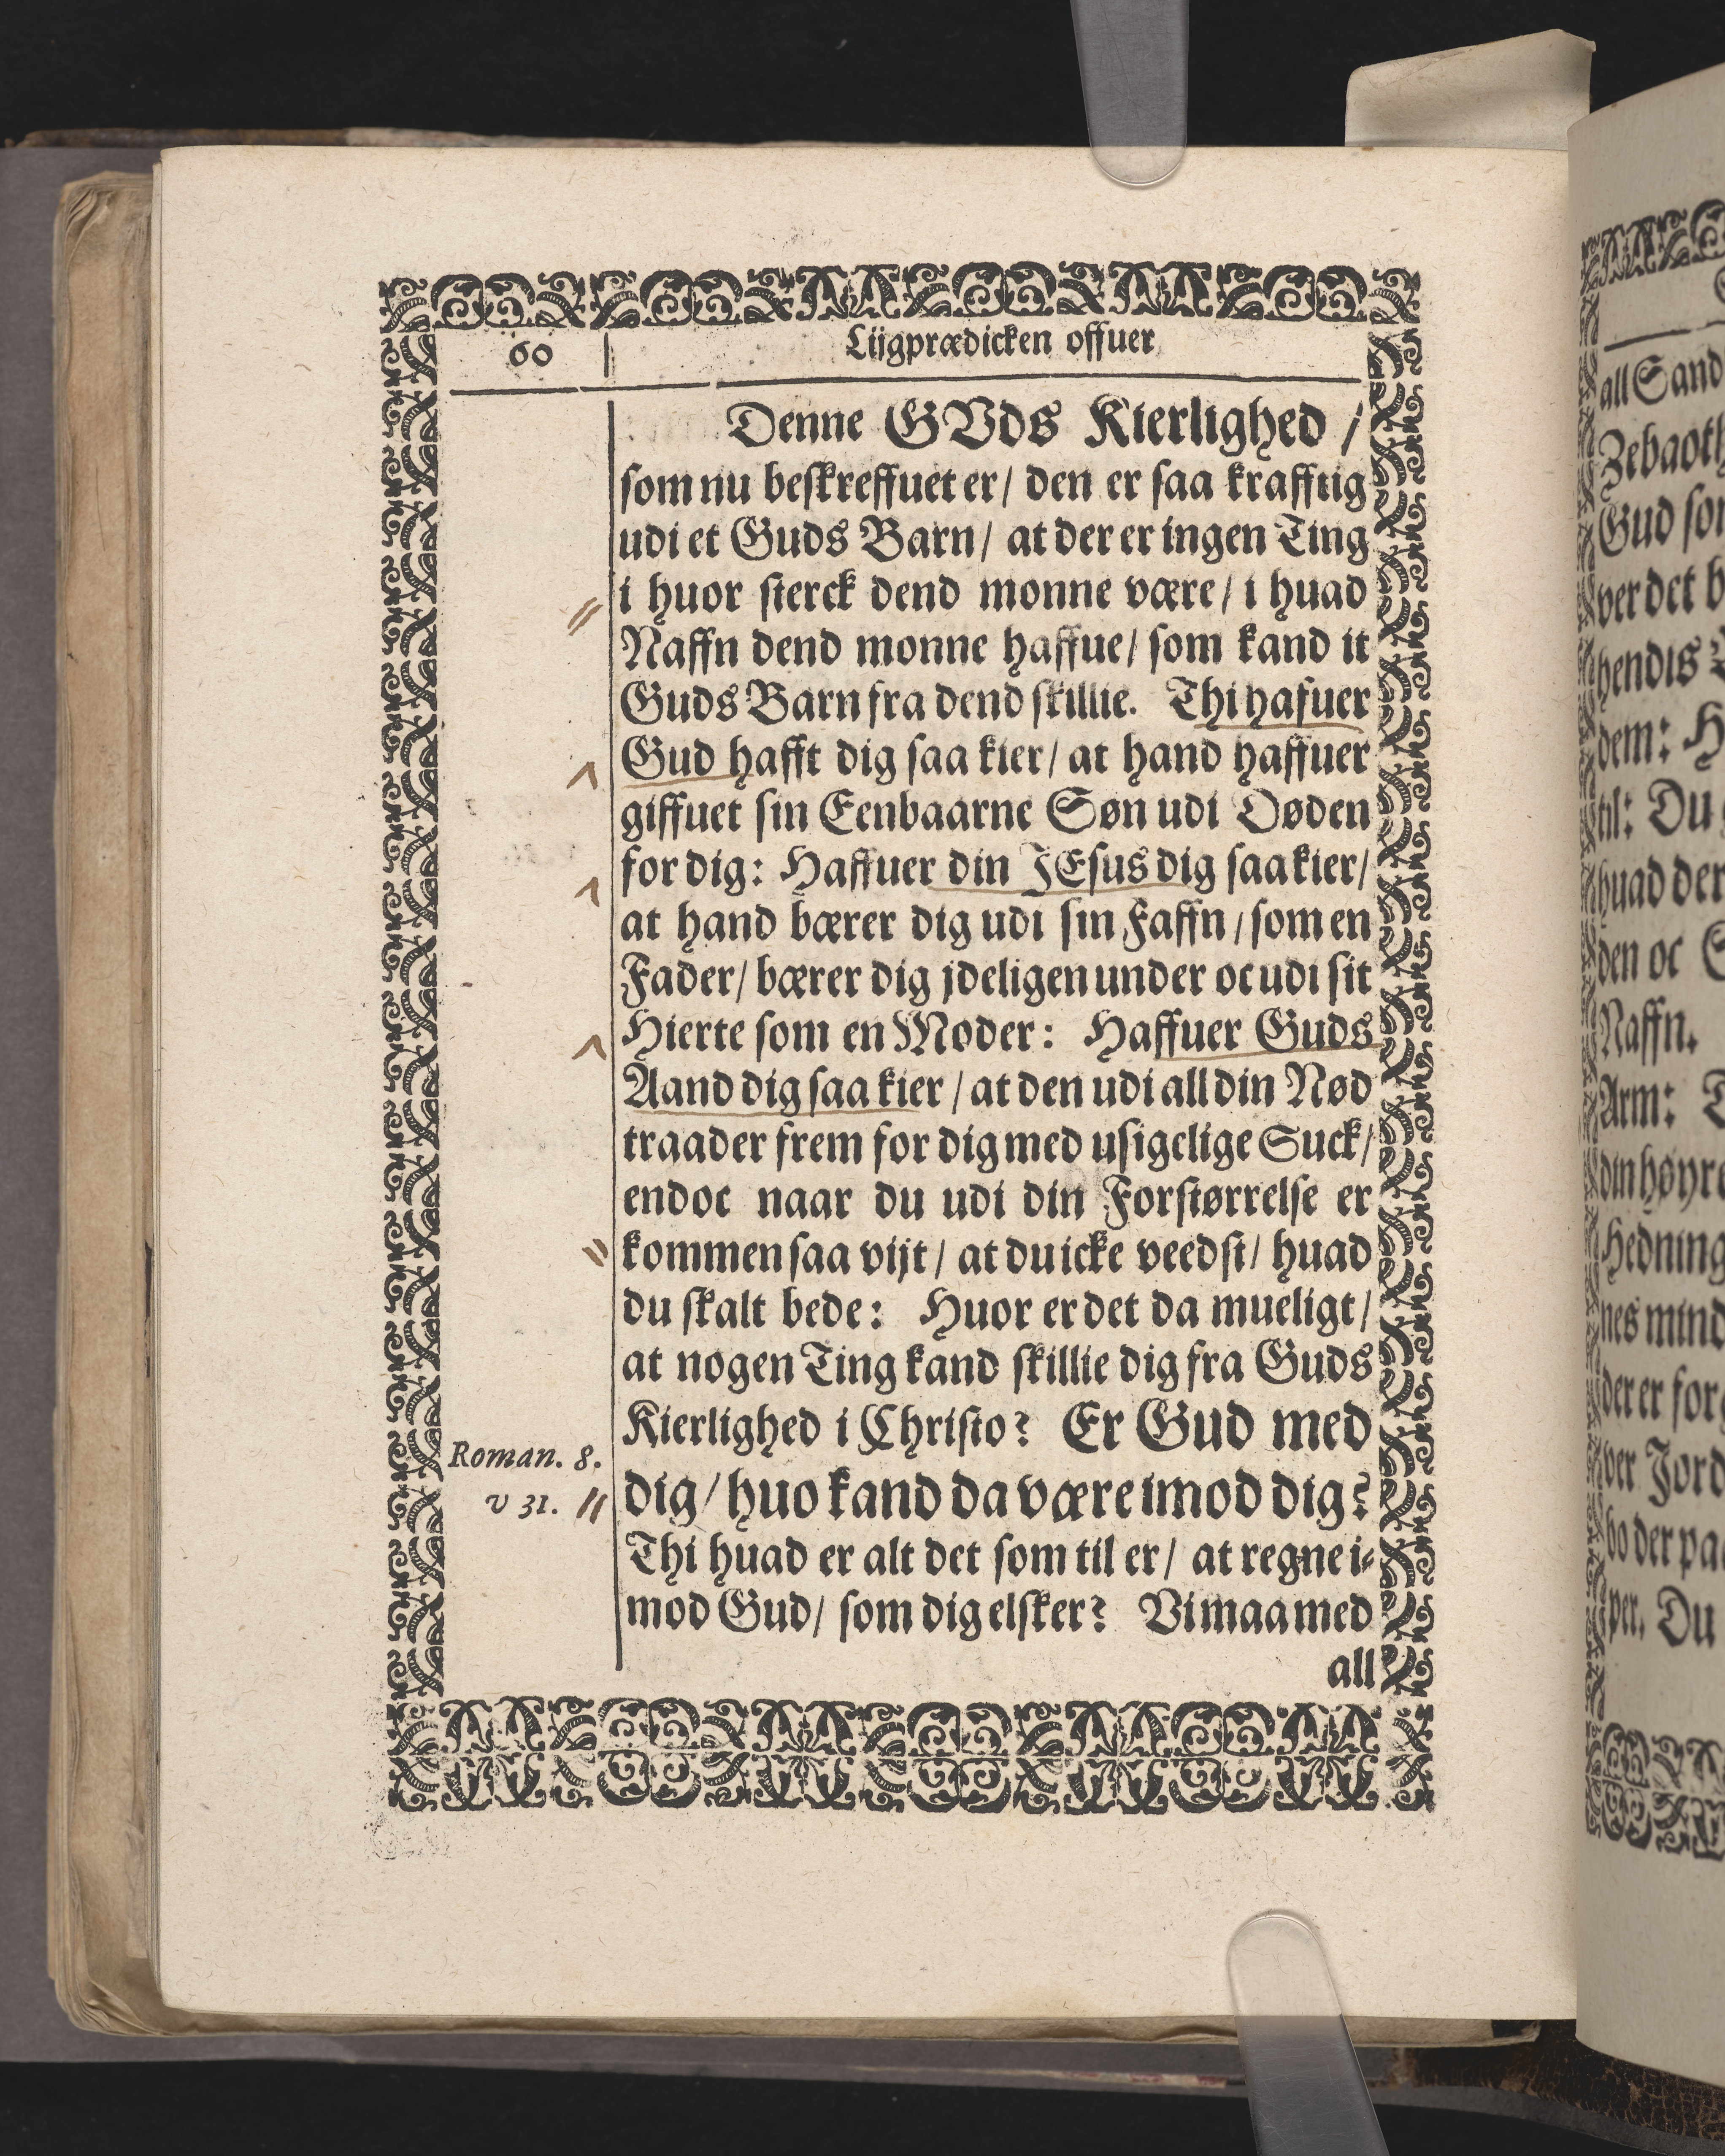 60
Lijgprædicken offuer
Denne GVds Kierlighed /
som nu beskreffuet er/ den er saa krafftig
udi et Guds Barn/ at der er ingen Ting
i huor sterck dend monne være/ i huad
Naffn dend monne haffue/ som kand it
Guds Barn fra dend skillie. Thi hafuer
Gud hafft dig saa kier/ at hand haffuer
giffuet sin Eenbaarne Søn udi Døden
for dig: Haffuer din JEsus dig saa kier/
at hand bærer dig udi sin Faffn / som en
Fader/ bærer dig jdeligen under oc udi sit
Hierte som en Moder: Haffuer Guds
Aand dig saa kier / at den udi all din Nød
traader frem for dig med usigelige Suck/
endoc naar du udi din Forstørrelse er
kommen saa vijt / at du icke veedst/ huad
du skalt bede: Huor er det da mueligt/
at nogen Ting kand skillie dig fra Guds
Kierlighed i Christo? Er Gud med
Roman. 8.
v 31.
dig/ huo kand da være imod dig?
Thi huad er alt det som til er/ at regne i-
mod Gud/ som dig elsker? Vi maa med
all
all Sand
Zebaoth
Gud som
ver det b
hendis
dem: H
til: Du
huad der
den oc S
Naffn.
Arm: T
din høyre
Hedning
nes mind
der er for
ver Jord
bo der paa
per. Du